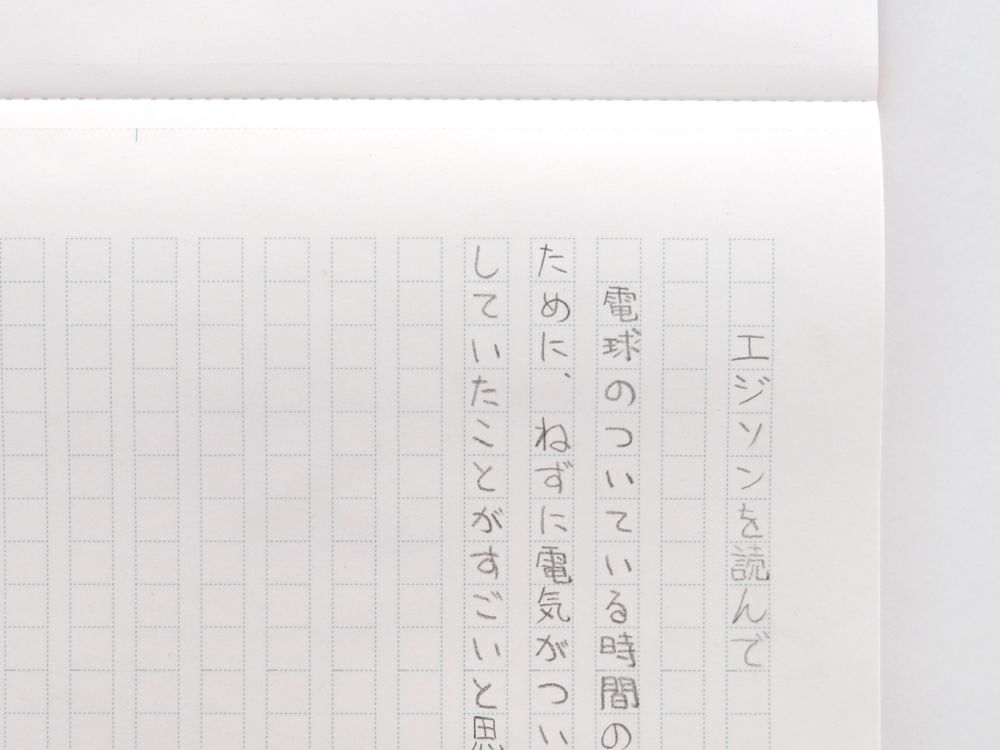 エジソンを読んで
電球のついている時間の
ために、ねずに電気がつい
していたことがすごいと思